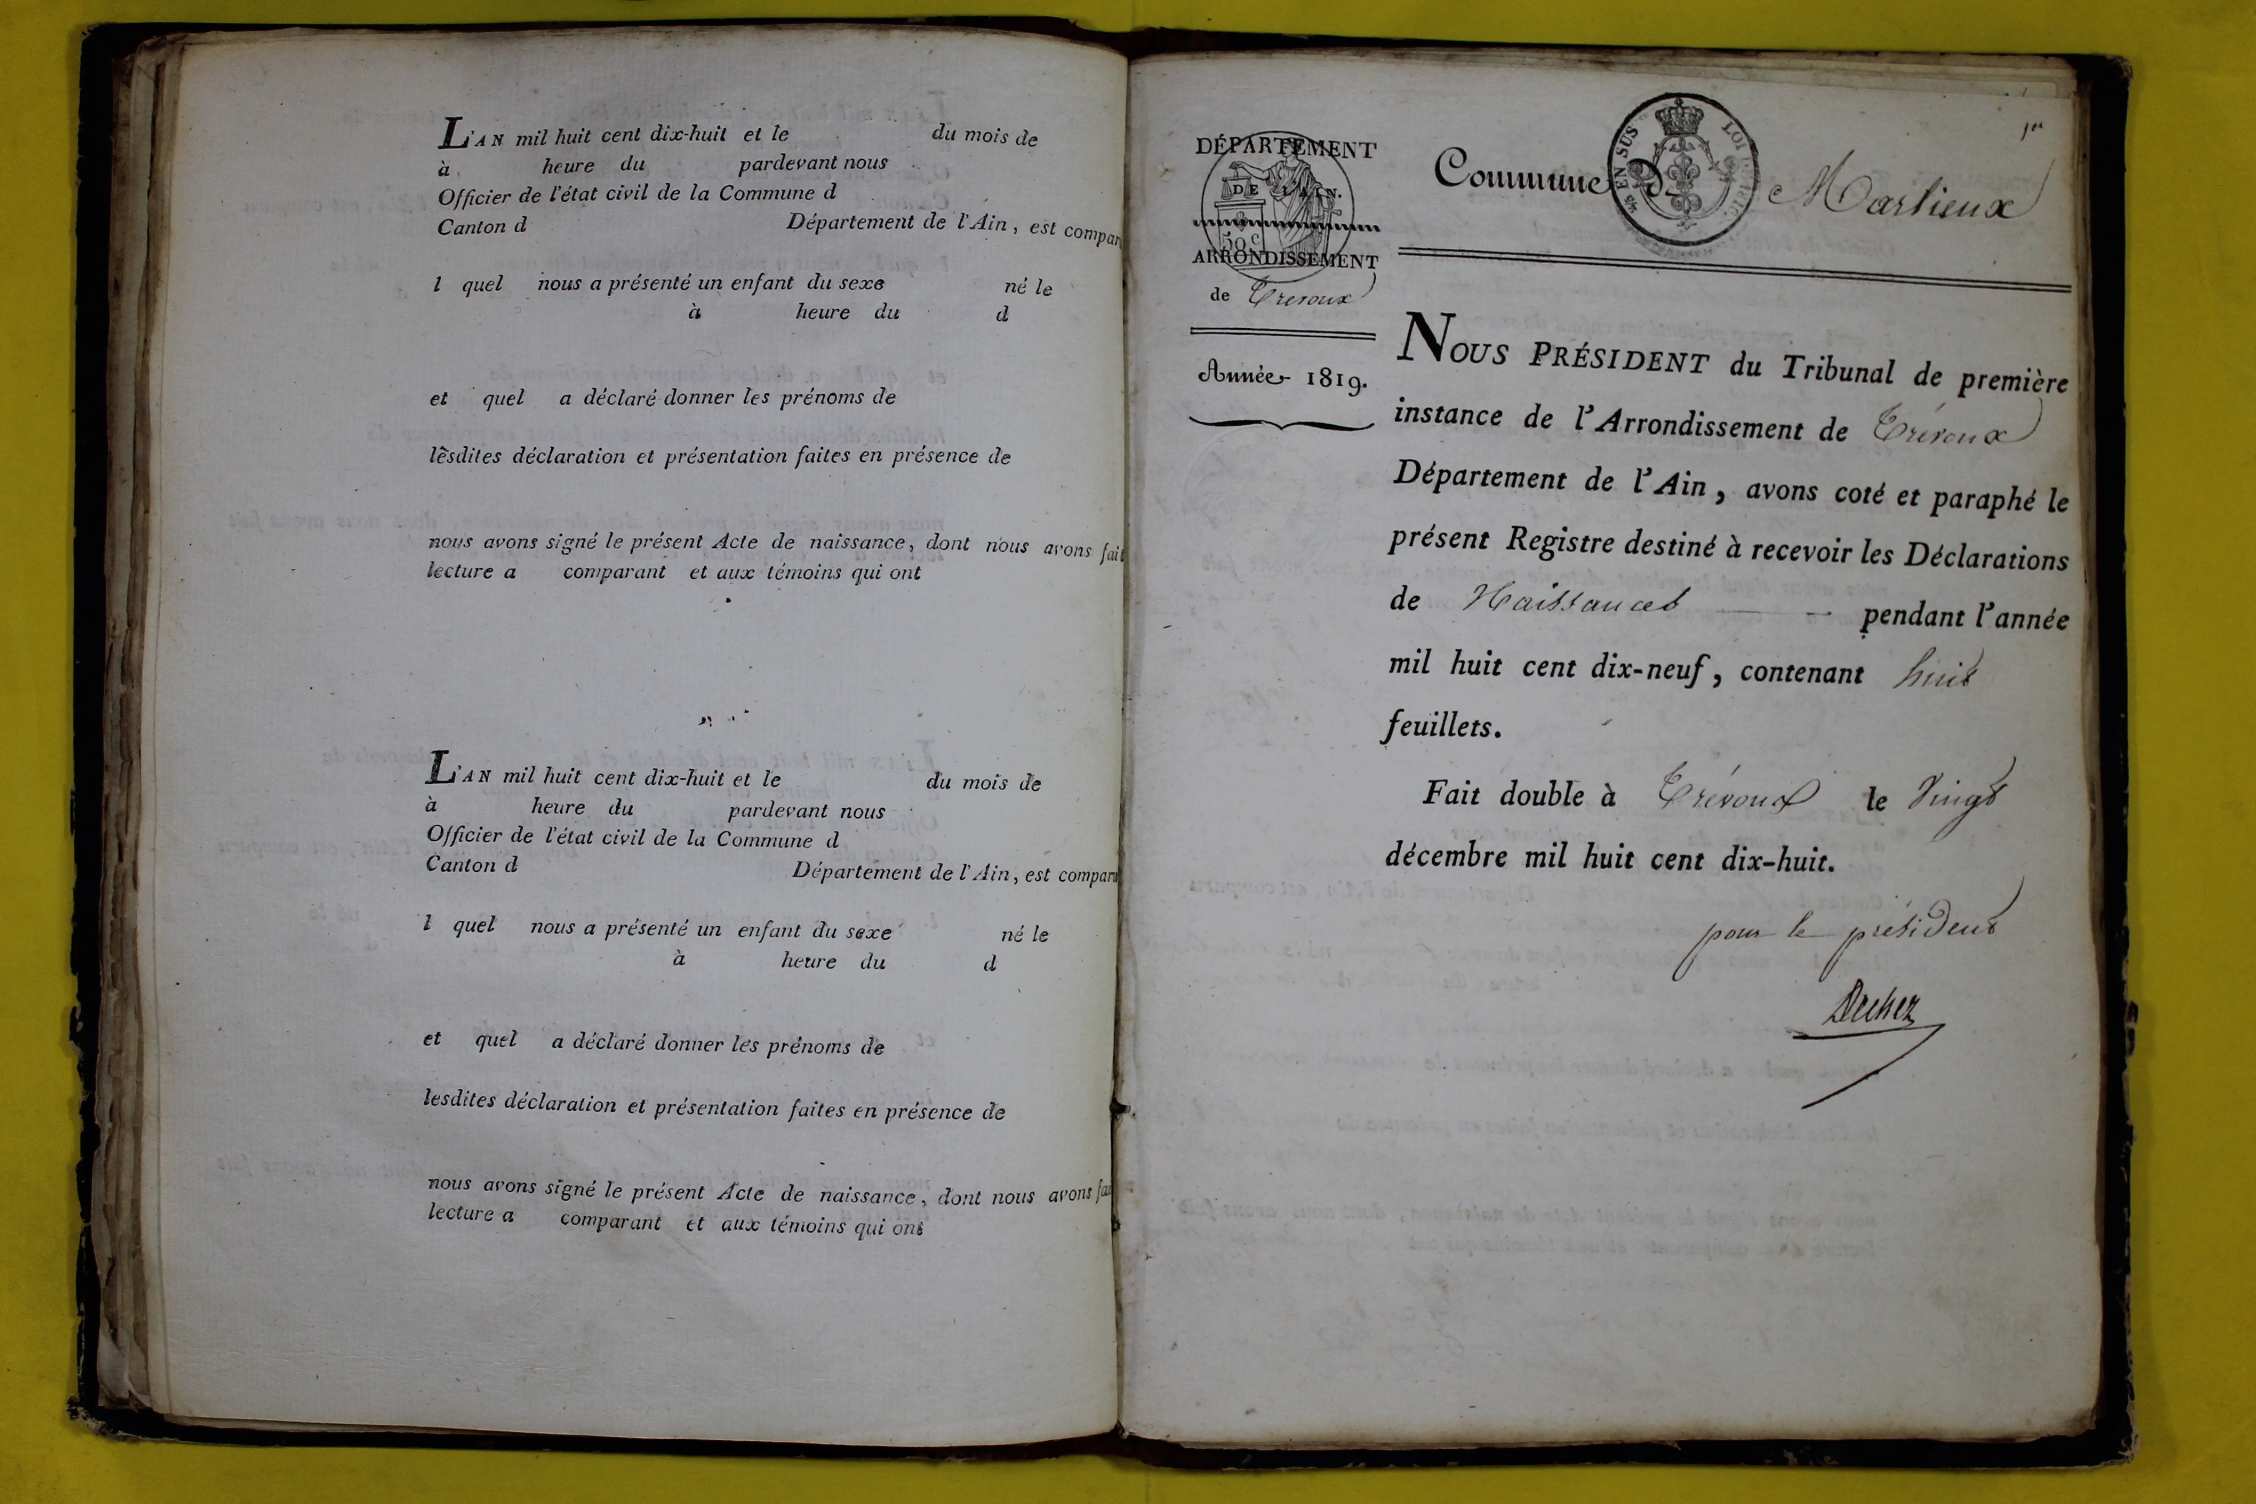 L'AN mil huit cent dix-huit et le du mois de
à heure du pardevant nous
Officier de l'état civil de la Commune d
Canton d Département de l'Ain, est comparu
l quel nous a présenté un enfant du sexe né le
à heure du d
et quel a déclaré donner les prénoms de
lesdites déclaration et présentation faites en présence de
nous avons signé le présent Acte de naissance, dont nous avons fait
lecture a comparant et aux témoins qui ont
L'AN mil huit cent dix-huit et le du mois de
à heure du pardevant nous
Officier de l'état civil de la Commune d
Canton d Département de l'Ain, est comparu
l quel nous a présenté un enfant du sexe né le
à heure du d
et quel a déclaré donner les prénoms de
lesdites déclaration et présentation faites en présence de
nous avons signé le présent Acte de naissance, dont nous avons fai
lecture a comparant et aux témoins qui ont
1er
DÉPARTEMENT
DE L'AIN.
50 c
ARRONDISSEMENT
de Trevoux
Année 1819.
EN SUS LOI
Commune de Marlieux
NOUS PRÉSIDENT du Tribunal de première
instance de l'Arrondissement de Trévoux
Département de l'Ain, avons coté et paraphé le
présent Registre destiné à recevoir les Déclarations
de Naissances — pendant l'année
mil huit cent dix-neuf, contenant huit
feuillets.
Fait double à Trévoux le Vingt
décembre mil huit cent dix-huit.
pour le président